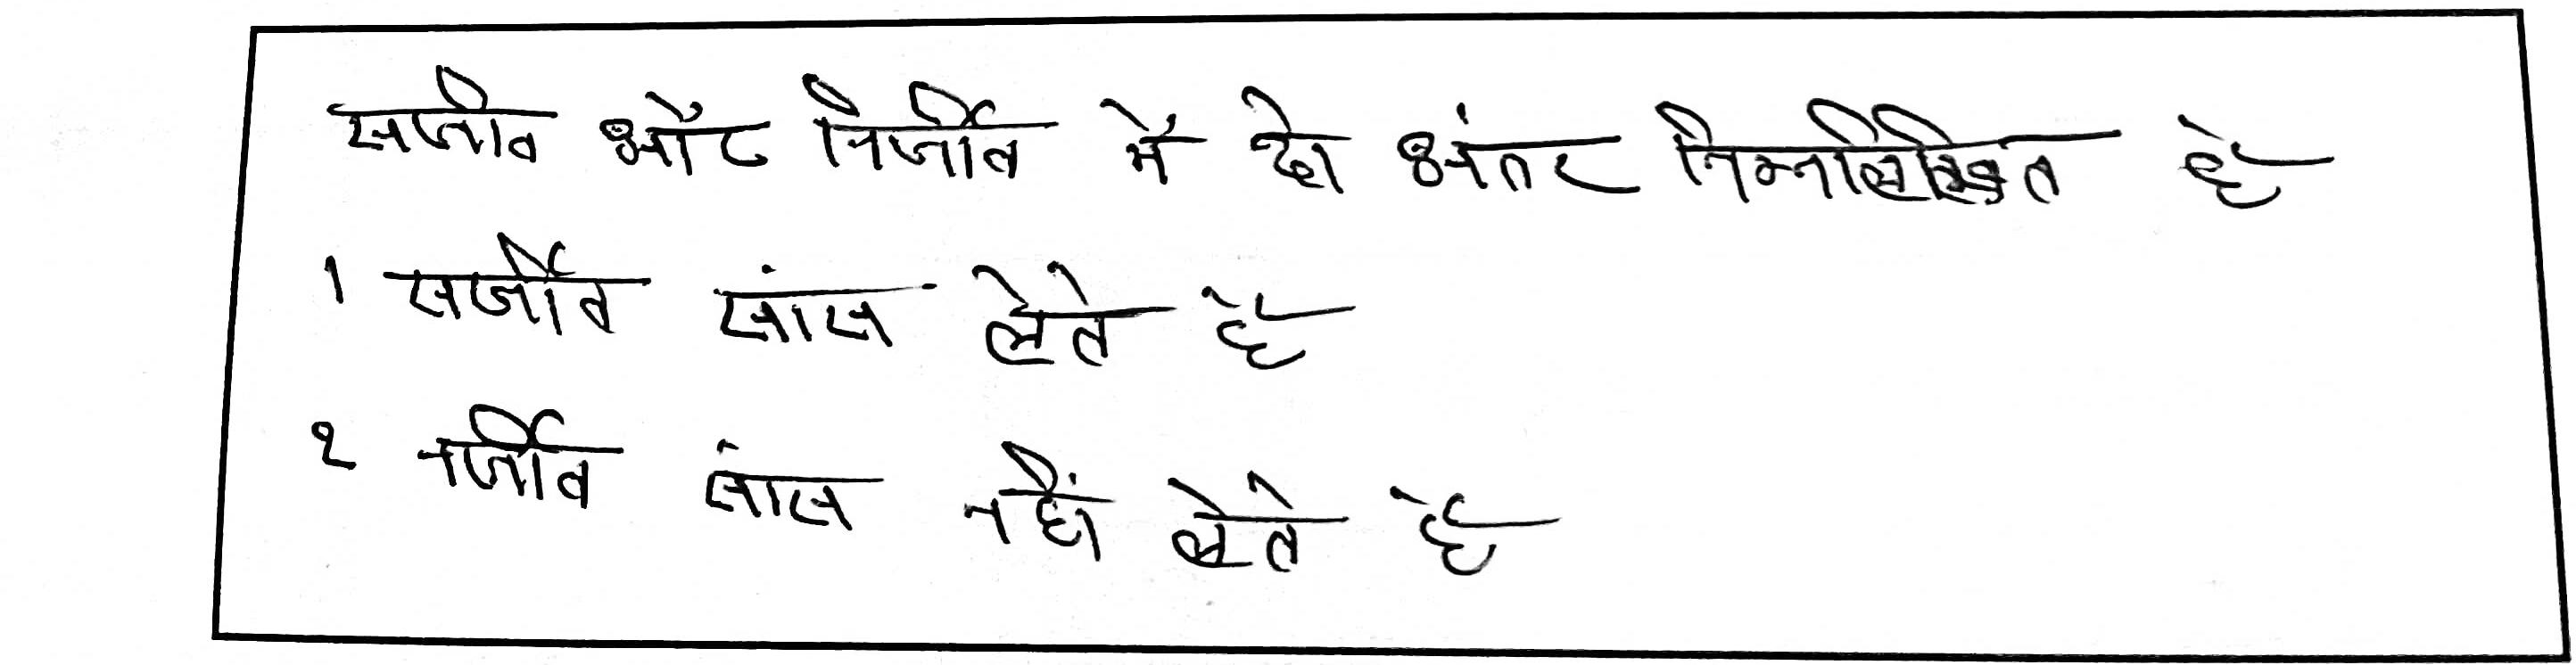 सजीव और निर्जीव में दो अंतर निम्नलिखित है
1 सर्जीव सांस लेते है
२ नर्जीव सांस नहीं लेते है